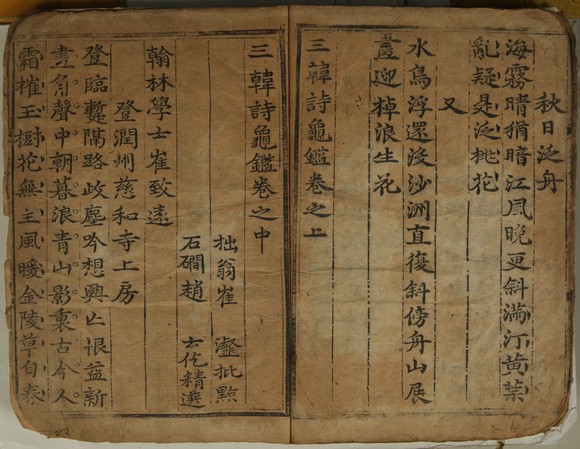 秋日泛舟
海霧晴猶暗江風晚更斜滿汀黃葉
亂疑是泛桃花
又
水鳥浮還沒沙洲直復斜傍舟山展
畫迎棹浪生花
三韓詩龜鑑卷之上
三韓詩龜鑑卷之中
拙翁崔 瀣批點
石磵趙 云仡精選
翰林學士崔致遠
登潤州慈和寺上房
登臨蹔隔路岐塵吟想興亡恨益新
畫角聲中朝暮浪青山影裏古今人
霜摧玉樹花無主風暖金陵草自春